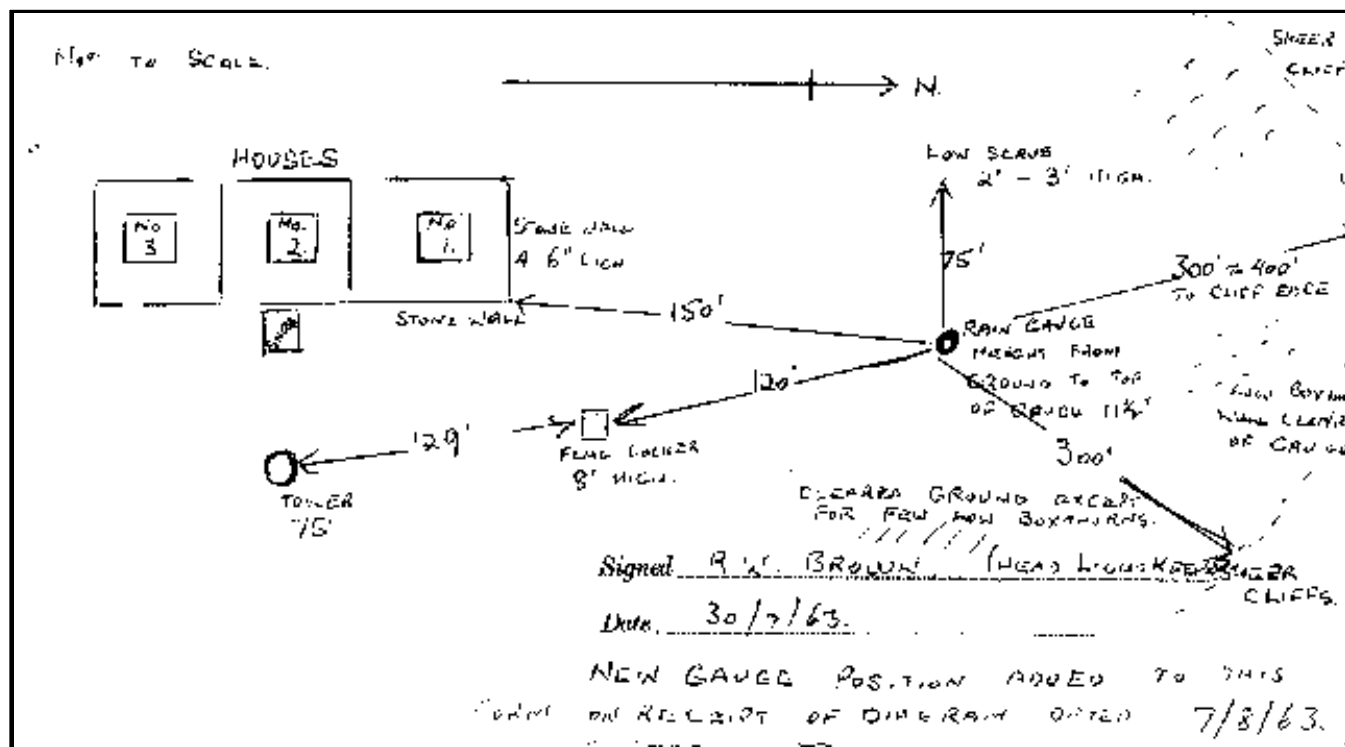 NOT TO SCALE.
N.
SHEER
CLIFF
HOUSES
LOW SCRUB
2' - 3' HIGH.
No
3
No.
2.
No
1.
STONE WALL
4' 6" HIGH
75'
300' TO 400'
TO CLIFF EDGE
STONE WALL
150'
RAIN GAUGE
HEIGHT FROM
GROUND TO TOP
OF GAUGE 11½"
120'
LOW BOXTH
WELL CLEAR
OF GAUGE
129'
FLAG LOCKER
8' HIGH.
300'
TOWER
75'
CLEARED GROUND EXCEPT
FOR FEW LOW BOXTHORNS.
Signed R W. BROWN (HEAD LIGHTKEEPER
SHEER
CLIFFS.
Date 30/7/63.
NEW GAUGE POSITION ADDED TO THIS
FORM ON RECEIPT OF DIAGRAM DATED 7/8/63.